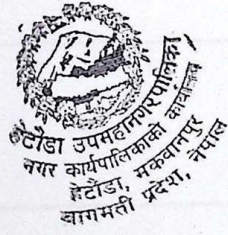 हेटौडा उपमहानगरपालिका
नगर कार्यपालिकाको कार्यालय
हेटौडा, मकवानपुर
बागमती प्रदेश, नेपाल